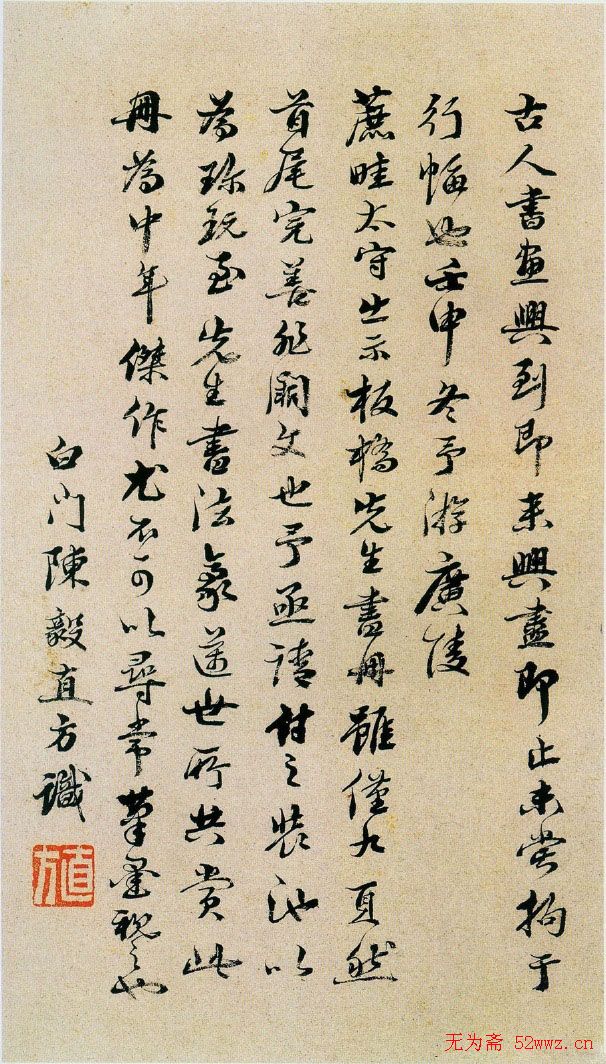 古人書画興到即来興盡即止未嘗拘于
行幅也壬申冬予游廣陵
蔗畦太守出示板橋先生書冊雖僅九頁然
首尾完善非闕文也予亟請付之裝池以
為珍玩至先生書法豪邁世所共賞此
冊為中年傑作尤不可以尋常筆墨視之也
白門陳毅直方識
直方
无为斋 52wwz.cn